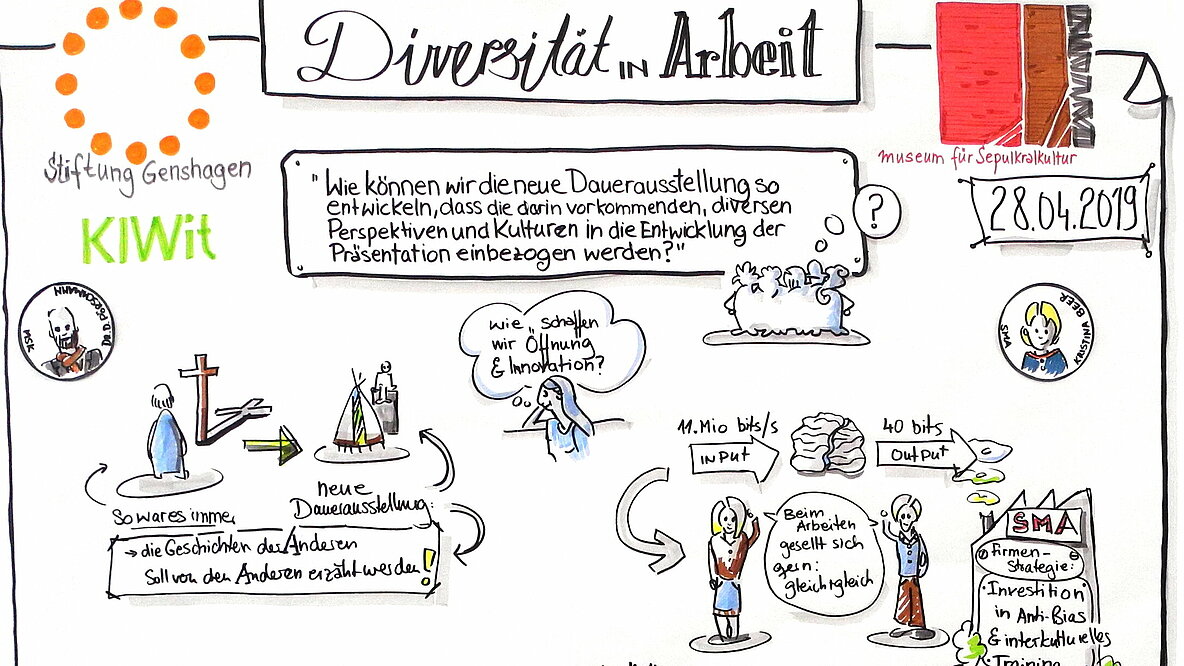 Diversität IN Arbeit
Stiftung Genshagen
KIWit
museum für Sepulkralkultur
28.04.2019
"Wie können wir die neue Dauerausstellung so
entwickeln, dass die darin vorkommenden, diversen
Perspektiven und Kulturen in die Entwicklung der
Präsentation einbezogen werden?"
?
MSK
SMA
KRISTINA BEER
wie schaffen
wir Öffnung
& Innovation?
So war es immer
neue
Dauerausstellung:
→ die Geschichten des Anderen
Soll von den Anderen erzählt werden!
11.Mio bits/s
INPUT
40 bits
OUTPUT
Beim
Arbeiten
gesellt sich
gern:
gleich + gleich
SMA
Firmen-
Strategie:
·Investition
in Anti-Bias
& interkulturelles
·Training